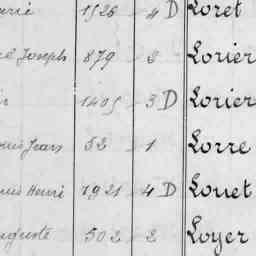 1526 4 D Loret
Joseph 879 2 Lorier
1405 3 D Lorier
Louis Jean 52 1 Lorre
Louis Henri 1921 4 D Louet
Auguste 502 2 Loyer